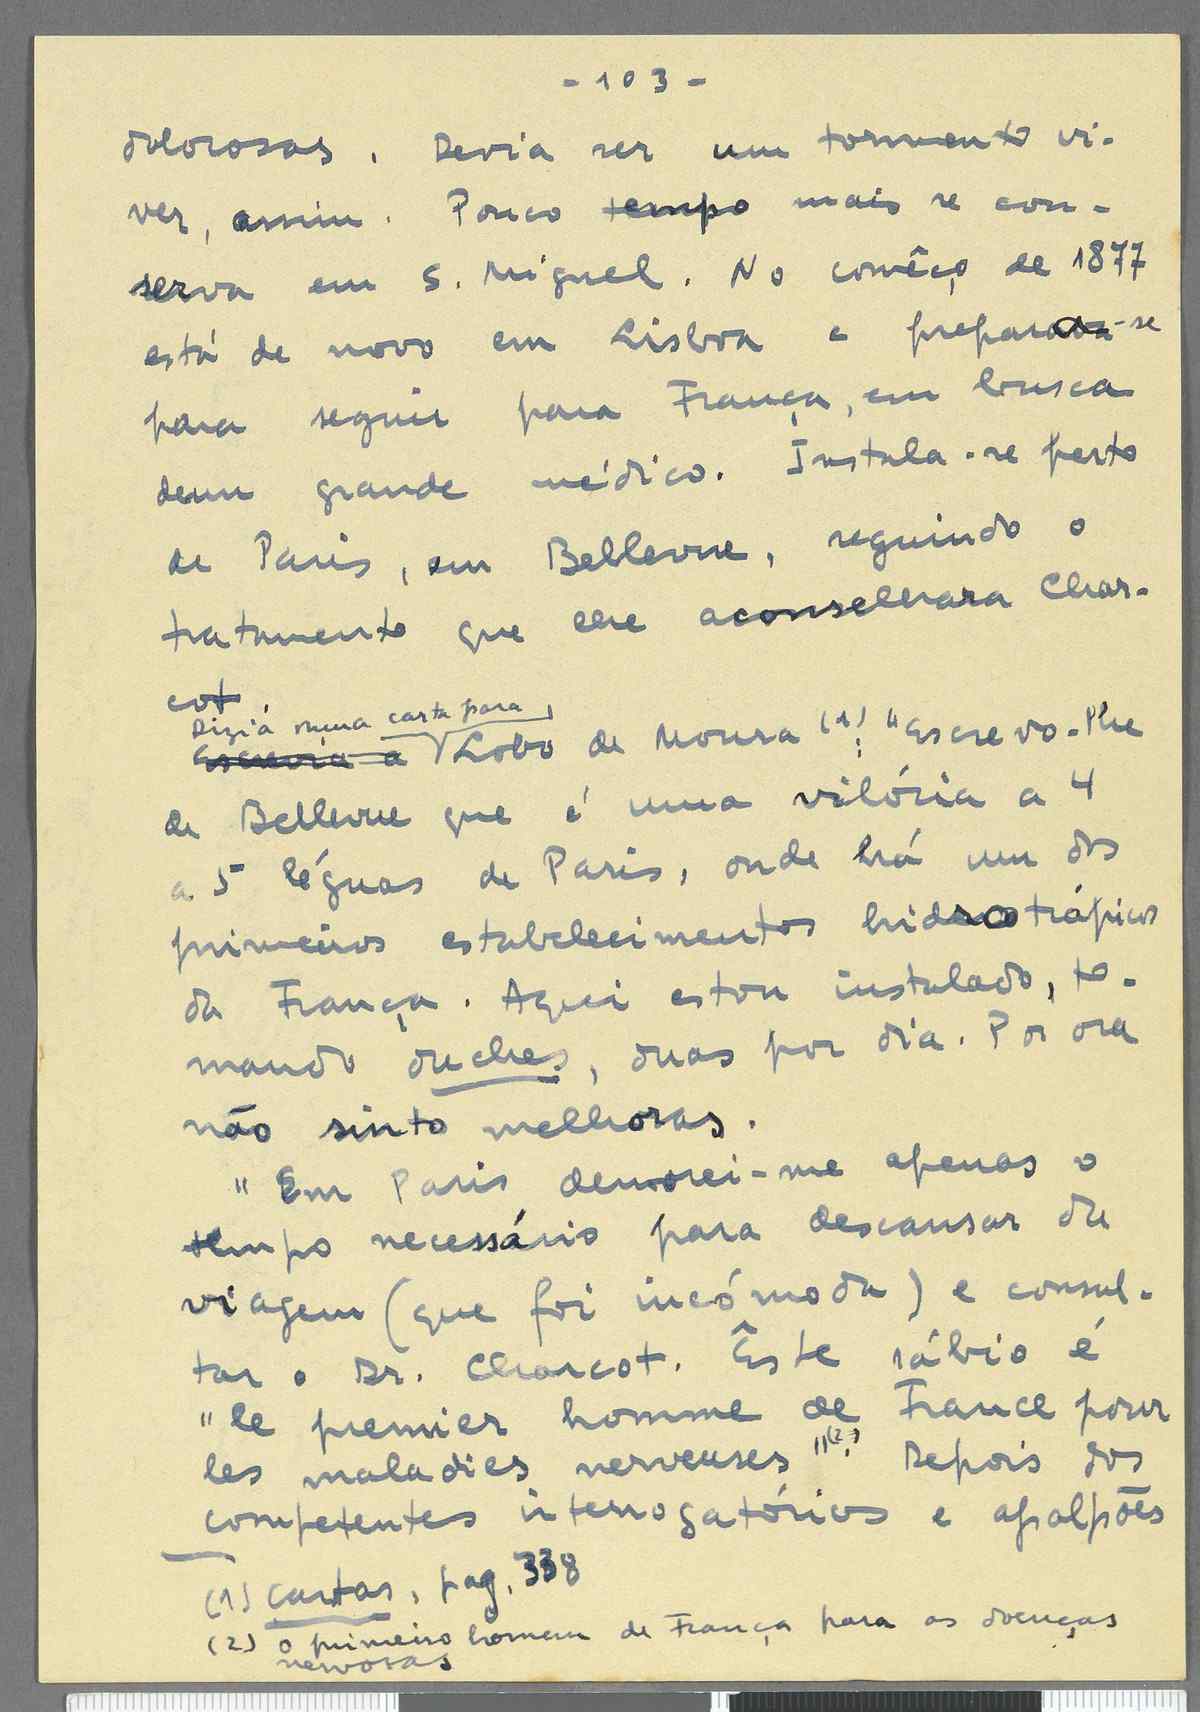 - 103 -
dolorosas. Devia ser um tormento vi-
ver, assim. Pouco tempo mais se con-
serva em S. Miguel. No comêço de 1877
está de novo em Lisboa e prepara-se
para seguir para França, em busca
dum grande médico. Instala-se perto
de Paris, em Bellevue, seguindo o
tratamento que lhe aconselhara Char-
cot.
Dizia numa carta para
Escrevia a Lobo de Moura (1): "Escrevo-lhe
de Bellevue que é uma vilória a 4
a 5 léguas de Paris, onde há um dos
primeiros estabelecimentos hidrotrápicos
da França. Aqui estou instalado, to-
mando duches, duas por dia. Por ora
não sinto melhoras.
"Em Paris demorei-me apenas o
tempo necessário para descansar da
viagem (que foi incómoda) e consul-
tar o Dr. Charcot. Êste sábio é
"le premier homme de France pour
les maladies nerveuses"(2). Depois dos
competentes interrogatórios e apalpões
(1) Cartas, pag. 338
(2) o primeiro homem de França para as doenças
nervosas